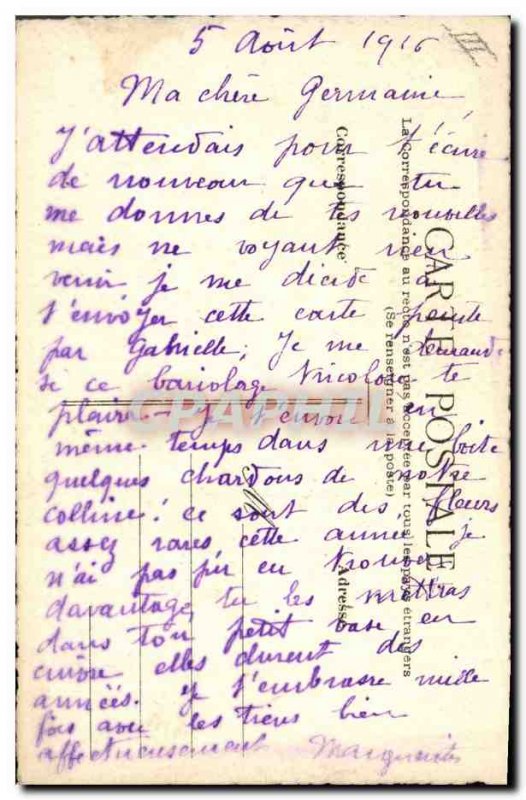 5 Août 1916
III
Ma chère Germaine
J'attendais pour t'écrire
de nouveau que tu
me donnes de tes nouvelles
mais ne voyant rien
venir je me décide à
t'envoyer cette carte peinte
par Gabrielle, Je me demande
si ce bariolage tricolore te
plaira - Je t'envoie en
même temps dans une boîte
quelques chardons de notre
colline : ce sont des fleurs
assez rares cette année, je
n'ai pas pu en trouver
davantage, tu les mettras
dans ton petit vase en
cuivre elles durent des
années. Je t'embrasse mille
fois avec les tiens bien
affectueusement Marguerite
CARTE POSTALE
La Correspondance au recto n'est pas acceptée par tous les pays étrangers
(Se renseigner à la poste)
Correspondance
Adresse
CPAPHIL